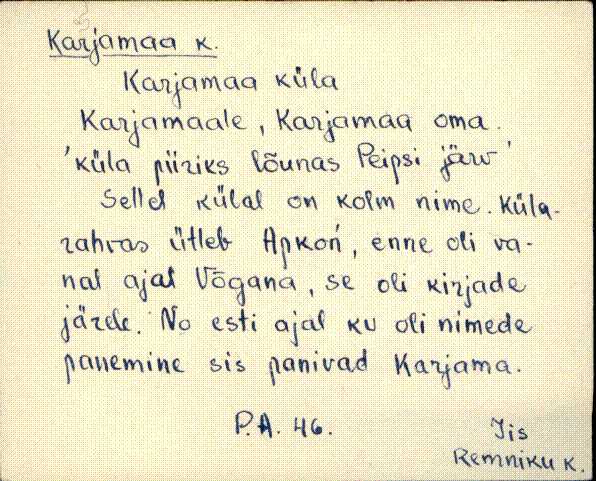 Karjamaa k.
Karjamaa küla
Karjamaale, Karjamaa oma.
'küla piiriks lõunas Peipsi järv'
Sellel külal on kolm nime. Küla-
rahvas ütleb Apkoń, enne oli va-
nal ajal Võgana, se oli kirjade
järele. No esti ajal ku oli nimede
panemine sis panivad Karjama.
P.A. 46.
Iis
Remniku k.